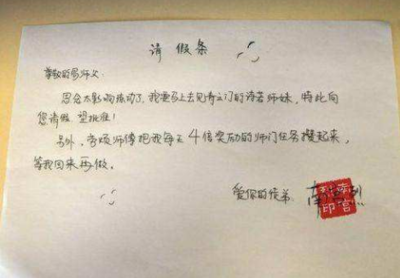 请假条
尊敬的易师父:
思念太影响练功了,我要马上去见青云门的诗若师妹,特此向
您请假,望批准!
另外,麻烦师傅把我每天4倍奖励的师门任务攒起来,
等我回来再做。
爱你的徒弟